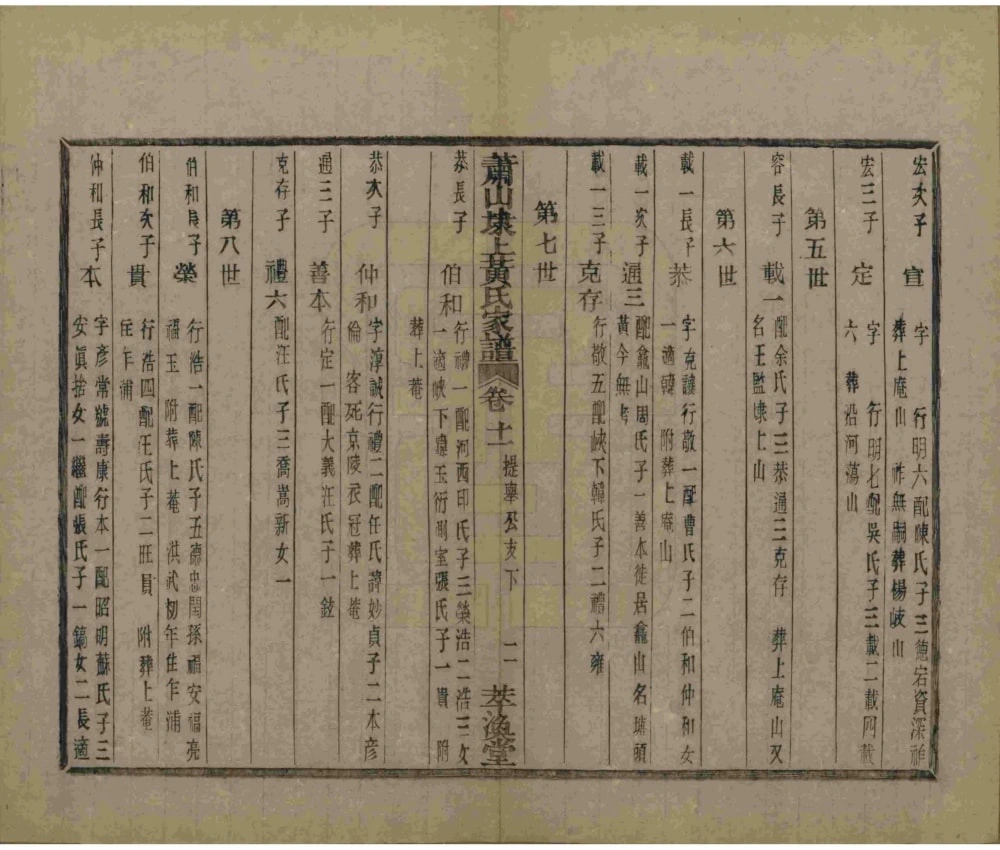 宏次子 宣 字 行明六配陳氏子三德宕資深祚
葬上庵山 祚無嗣葬楊岐山
宏三子 定 字 行明七配吳氏子三載二載四載
六 葬沿河蕩山
第五世
容長子 載一 配余氏子三恭通三克存 葬上庵山又
名王監埭上山
第六世
載一長子 恭 字克讓行敬一配曹氏子二伯和仲和女
一適韓 附葬上庵山
載一次子 通三 配龕山周氏子一善本徙居龕山名埭頭
黃今無考
載一三子 克存 行敬五配峽下韓氏子二禮六雍
第七世
蕭山埭上黃氏家譜 卷十一 提舉公支下 二 萃渙堂
恭長子 伯和 行禮一配河西印氏子三榮浩二浩三女
一適峽下 玉衍側室張氏子一貴 附
葬上菴
恭次子 仲和 字淳誠行禮二配任氏諱妙貞子二本彥
倫 客死京陵衣冠葬上菴
通三子 善本 行定一配大義汪氏子一鉉
克存子 禮六 配汪氏子三喬嵩新女一
第八世
伯和長子 榮 行浩一配陳氏子五德忠閏孫福安福亮
福玉 附葬上菴 洪武初年住乍浦
伯和次子 貴 行浩四配汪氏子二旺員 附葬上菴
住乍浦
仲和長子 本 字彥常號壽康行本一配昭明蘇氏子三
安眞捨女一繼配張氏子一鎬女二長適